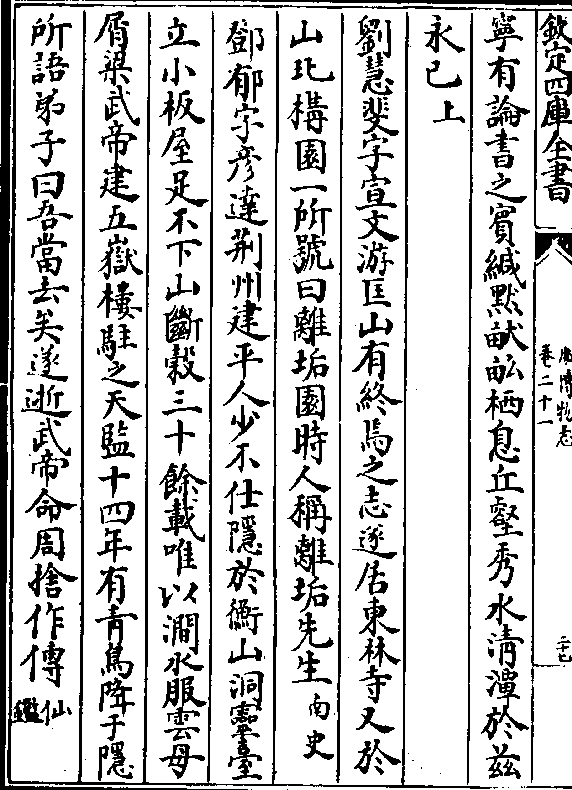 欽定四庫全書
廣博物志
卷二十一
二十七
寧有論書之賓緘默畎畝栖息丘壑秀水清潭於兹
永已上
劉慧斐字宣文游匡山有終焉之志遂居東林寺又於
山北構園一所號曰離垢園時人稱離垢先生南史
鄧郁字彥達荆州建平人少不仕隱於衡山洞靈臺
立小板屋足不下山斷穀三十餘載唯以澗水服雲母
屑梁武帝建五嶽樓駐之天監十四年有青鳥降于隱
所語弟子曰吾當去矣遂逝武帝命周捨作傳仙鑑